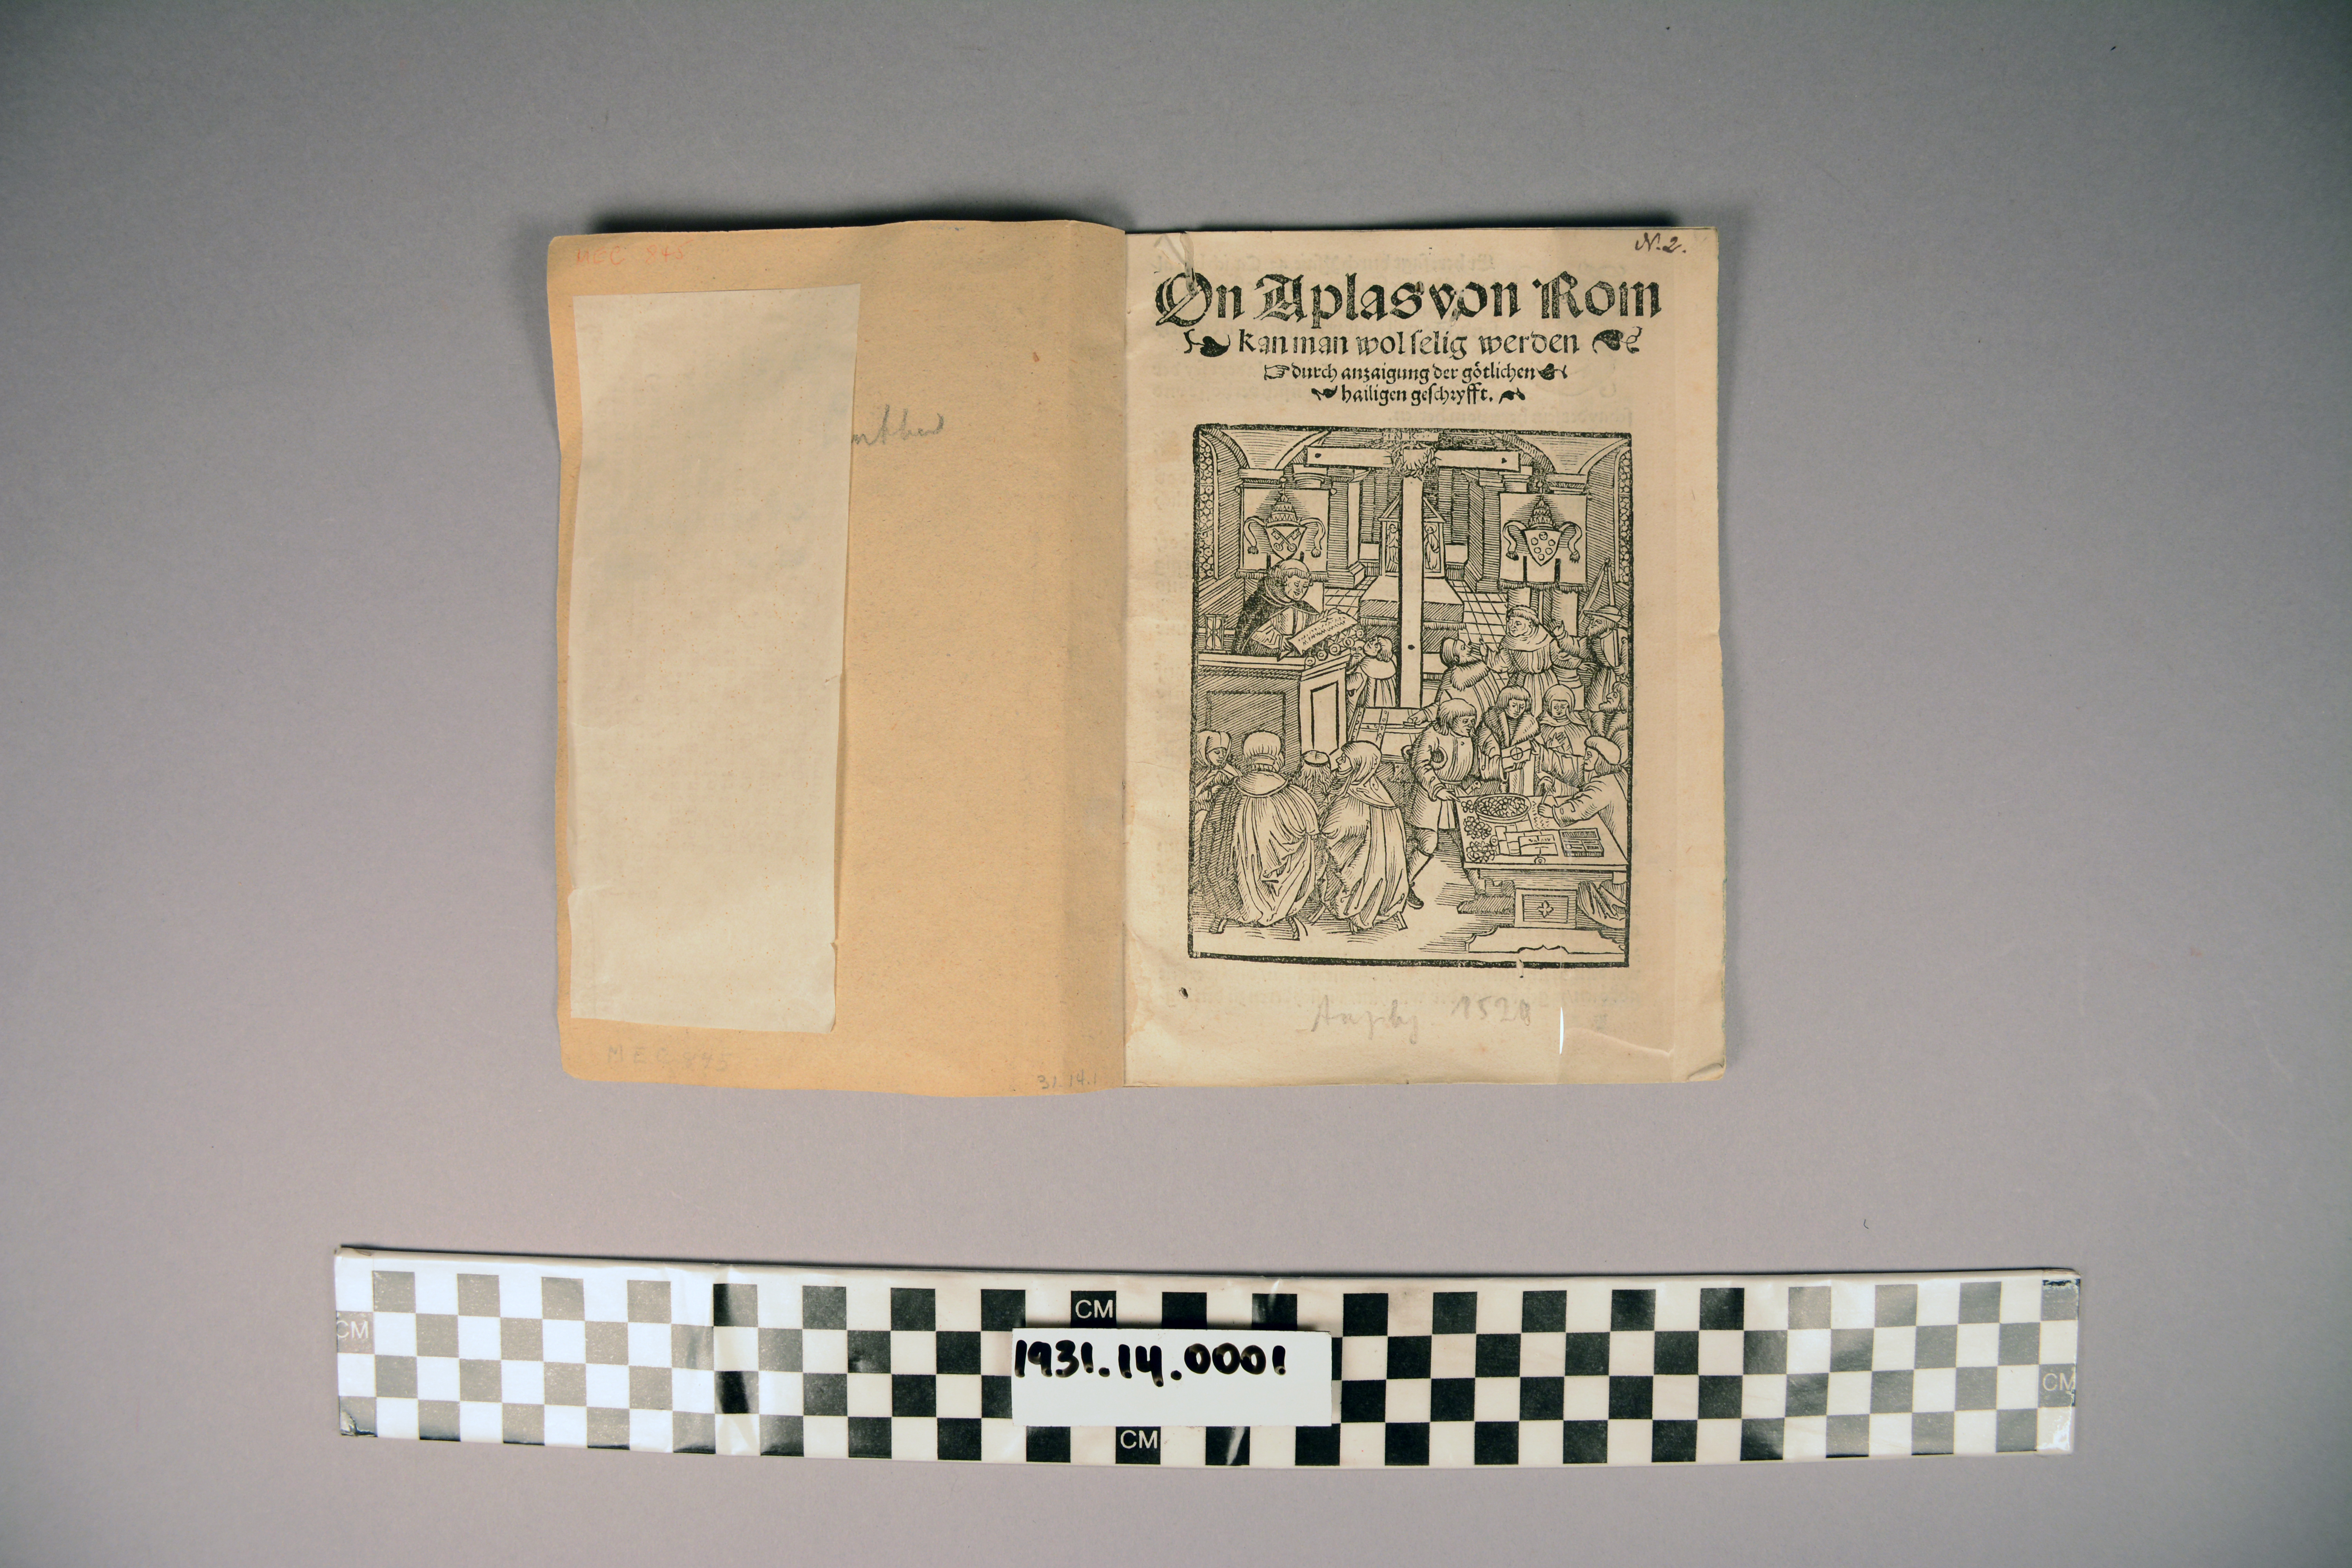 MEC 845
MEC 845
31.14.1
N. 2.
On Aplas von Rom
kan man wol selig werden
durch anzaigung der götlichen
hailigen geschryfft.
1520
CM
CM
CM
CM
1931.14.0001